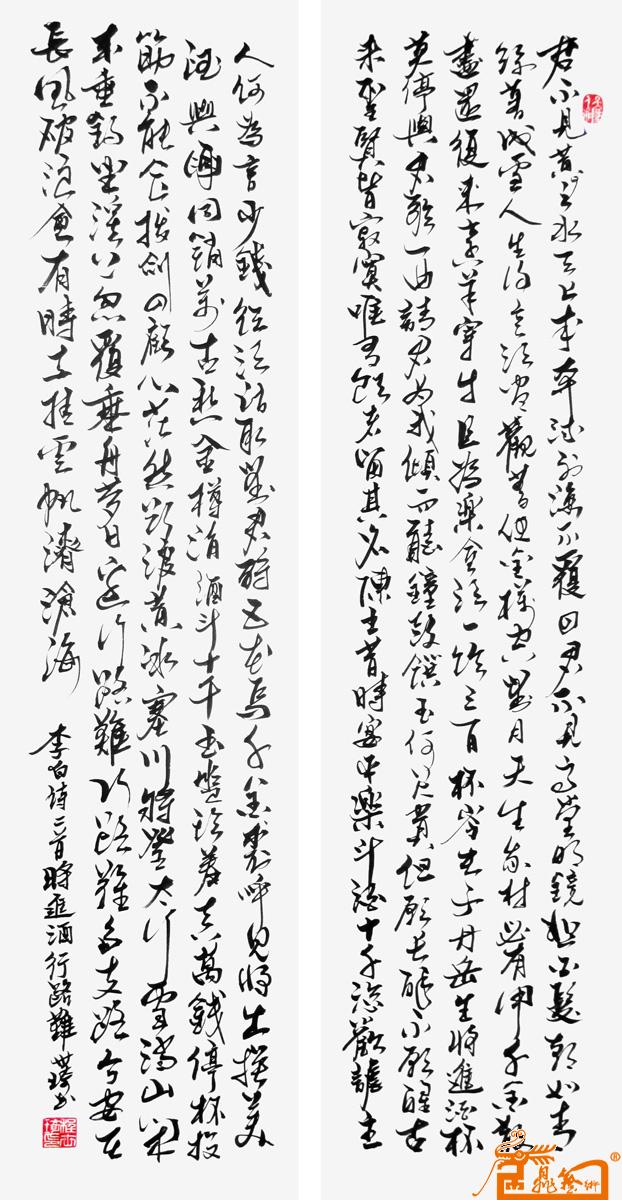 君不見黃河之水天上來奔流到海不復回君不見高堂明鏡悲白髮朝如青
絲暮成雪人生得意須盡歡莫使金樽空對月天生我材必有用千金散
盡還復來烹羊宰牛且為樂會須一飲三百杯岑夫子丹丘生將進酒杯
莫停與君歌一曲請君為我傾耳聽鐘鼓饌玉何足貴但願長醉不願醒古
來聖賢皆寂寞唯有飲者留其名陳王昔時宴平樂斗酒十千恣歡謔主
人何為言少錢徑須沽取對君酌五花馬千金裘呼兒將出換美
酒與爾同銷萬古愁金樽清酒斗十千玉盤珍羞直萬錢停杯投
筯不能食拔劍四顧心茫然欲渡黃冰塞川將登太行雪滿山閑
來垂釣坐溪上忽覆乘舟夢日邊行路難行路難多歧路今安在
長風破浪會有時直挂雲帆濟滄海
李白詩二首將進酒行路難